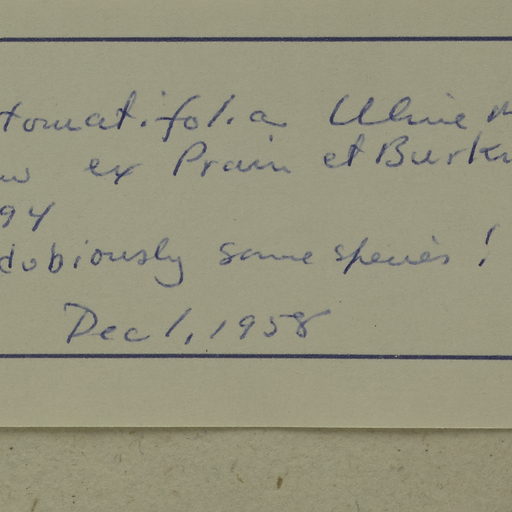 tomatifolia Uline
ex Prain et Burk
94
dubiously same species!
Dec 1, 1958